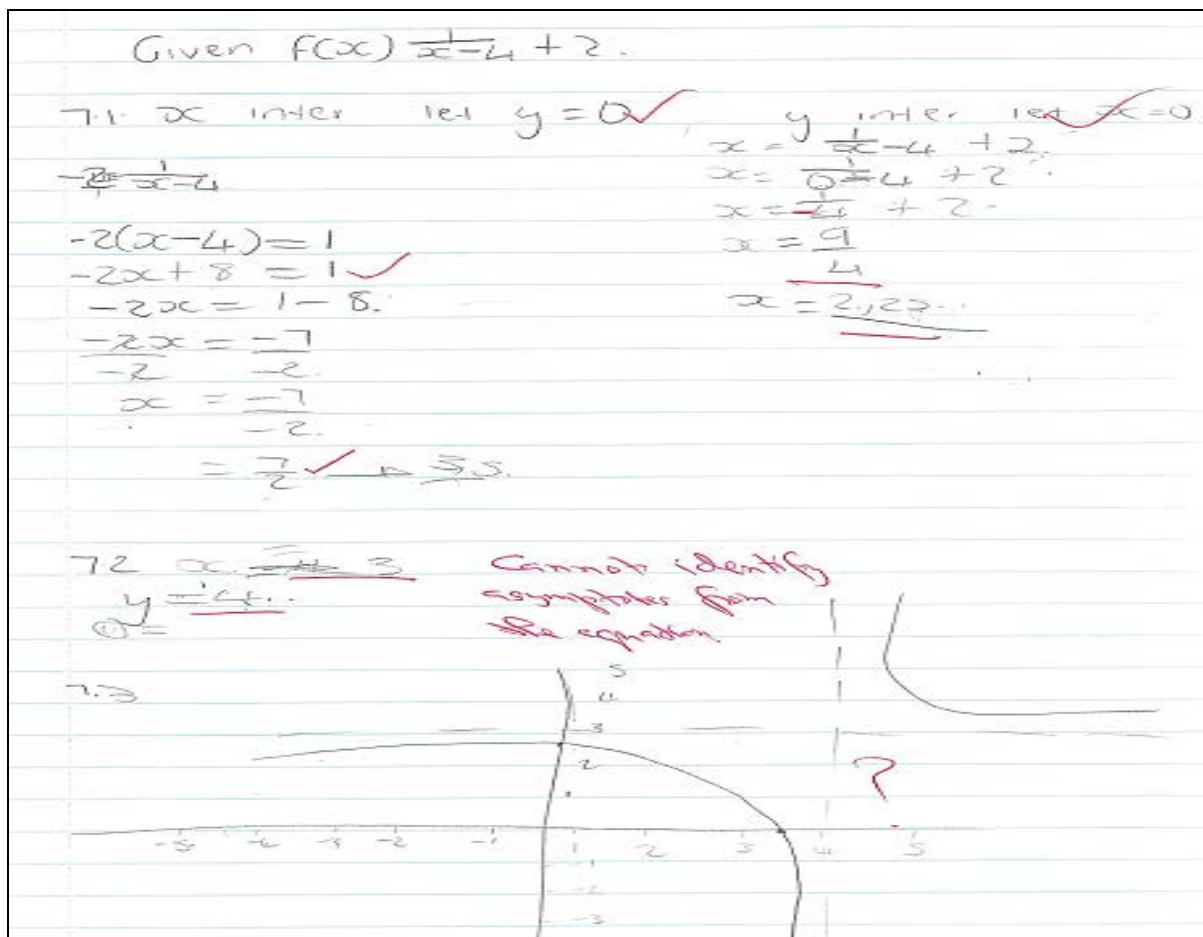 Given f(x) 1/x-4 + 2.
7.1. x inter let y = 0
-2/1 = 1/x-4
-2(x-4) = 1
-2x + 8 = 1
-2x = 1 - 8.
-2x/-2 = -7/-2.
x = -7/-2.
= 7/2 3.5.
y inter let x=0
x = 1/x-4 + 2.
x = 1/0-4 + 2.
x = 1/-4 + 2.
x = 9/4
72 x 3
y = 4..
Cannot identify
asymptotes from
the equation
7.3
5
4
3
2
1
-5 -4 -3 -2 -1 1 2 3 4 5
-1
-2
-3
?